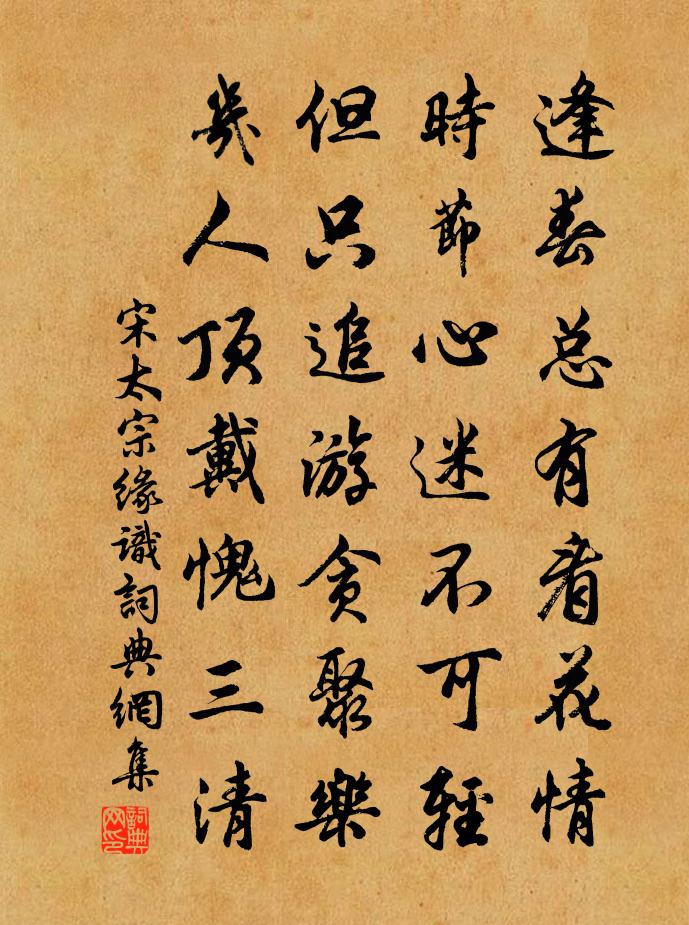 逢春总有看花情
時節心迷不可輕
但只追游贪聚樂
幾人顶戴愧三清
宋太宗緣識詞典網集
詞典网印